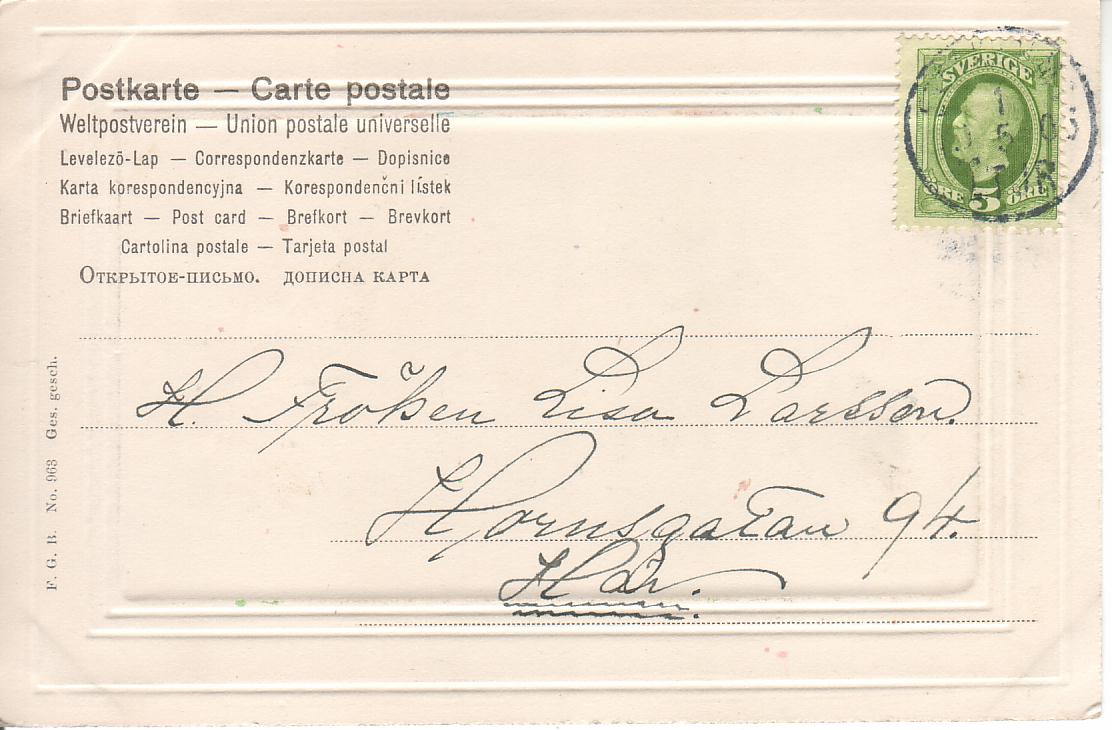 Postkarte — Carte postale
Weltpostverein — Union postale universelle
Levelező-Lap — Correspondenzkarte — Dopisnice
Karta korespondencyjna — Korespondenčni lístek
Briefkaart — Post card — Brefkort — Brevkort
Cartolina postale — Tarjeta postal
Открытое-письмо. дописна карта
SVERIGE
5 ÖRE
H. Fröken Lisa Larsson.
Hornsgatan 94.
Här.
F. G. B. No. 963 Ges. gesch.